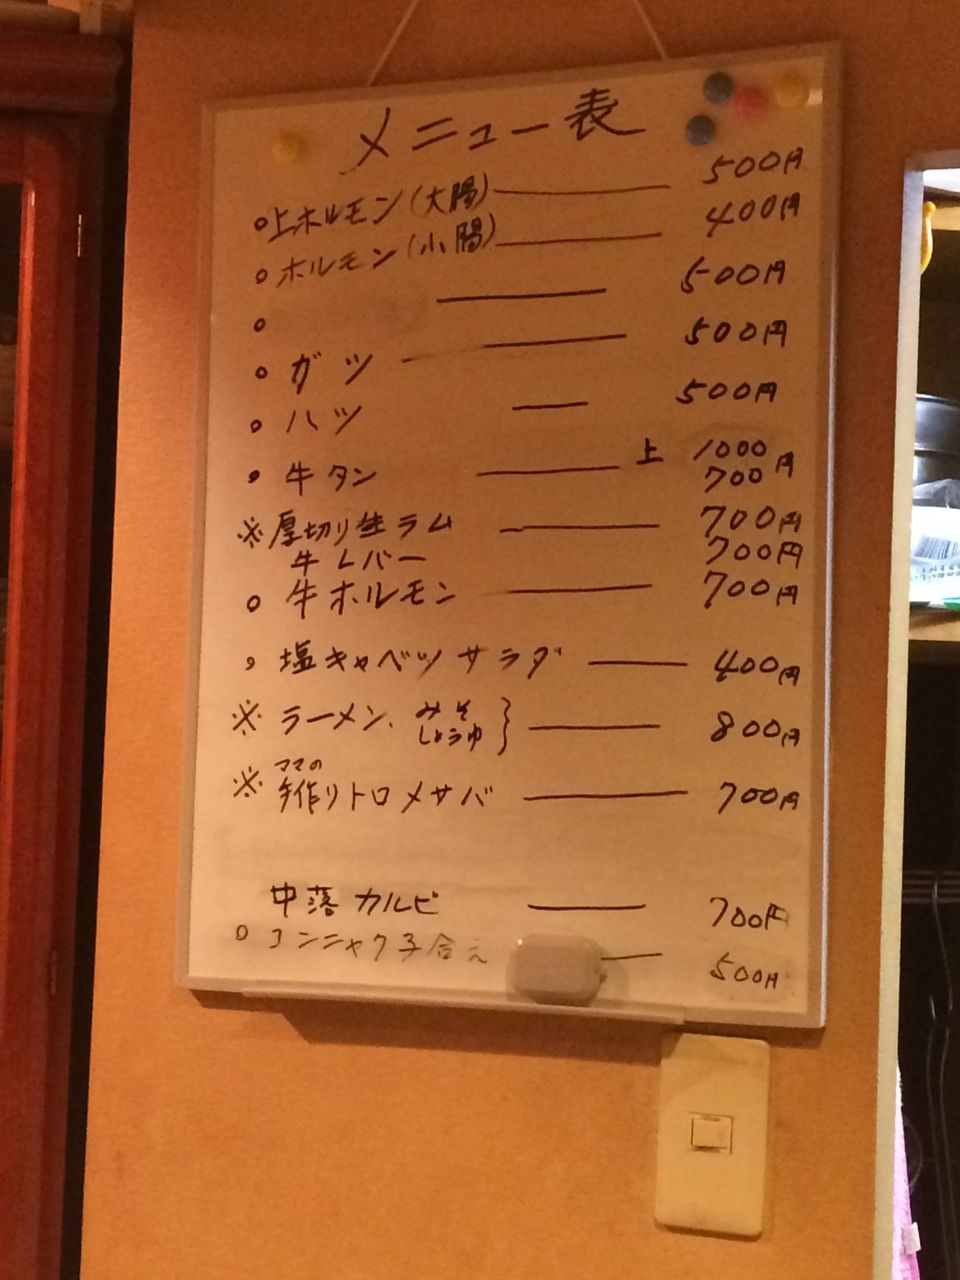 メニュー表
○上ホルモン(大腸) 500円
○ホルモン(小腸) 400円
○ 500円
○ガツ 500円
○ハツ 500円
○牛タン 上 1000
700円
※厚切り生ラム 700円
牛レバー 700円
○牛ホルモン 700円
○塩キャベツサラダ 400円
※ラーメン、みそ
しょうゆ} 800円
ママの
※手作りトロメサバ 700円
中落カルビ 700円
○コンニャク子合え 500円